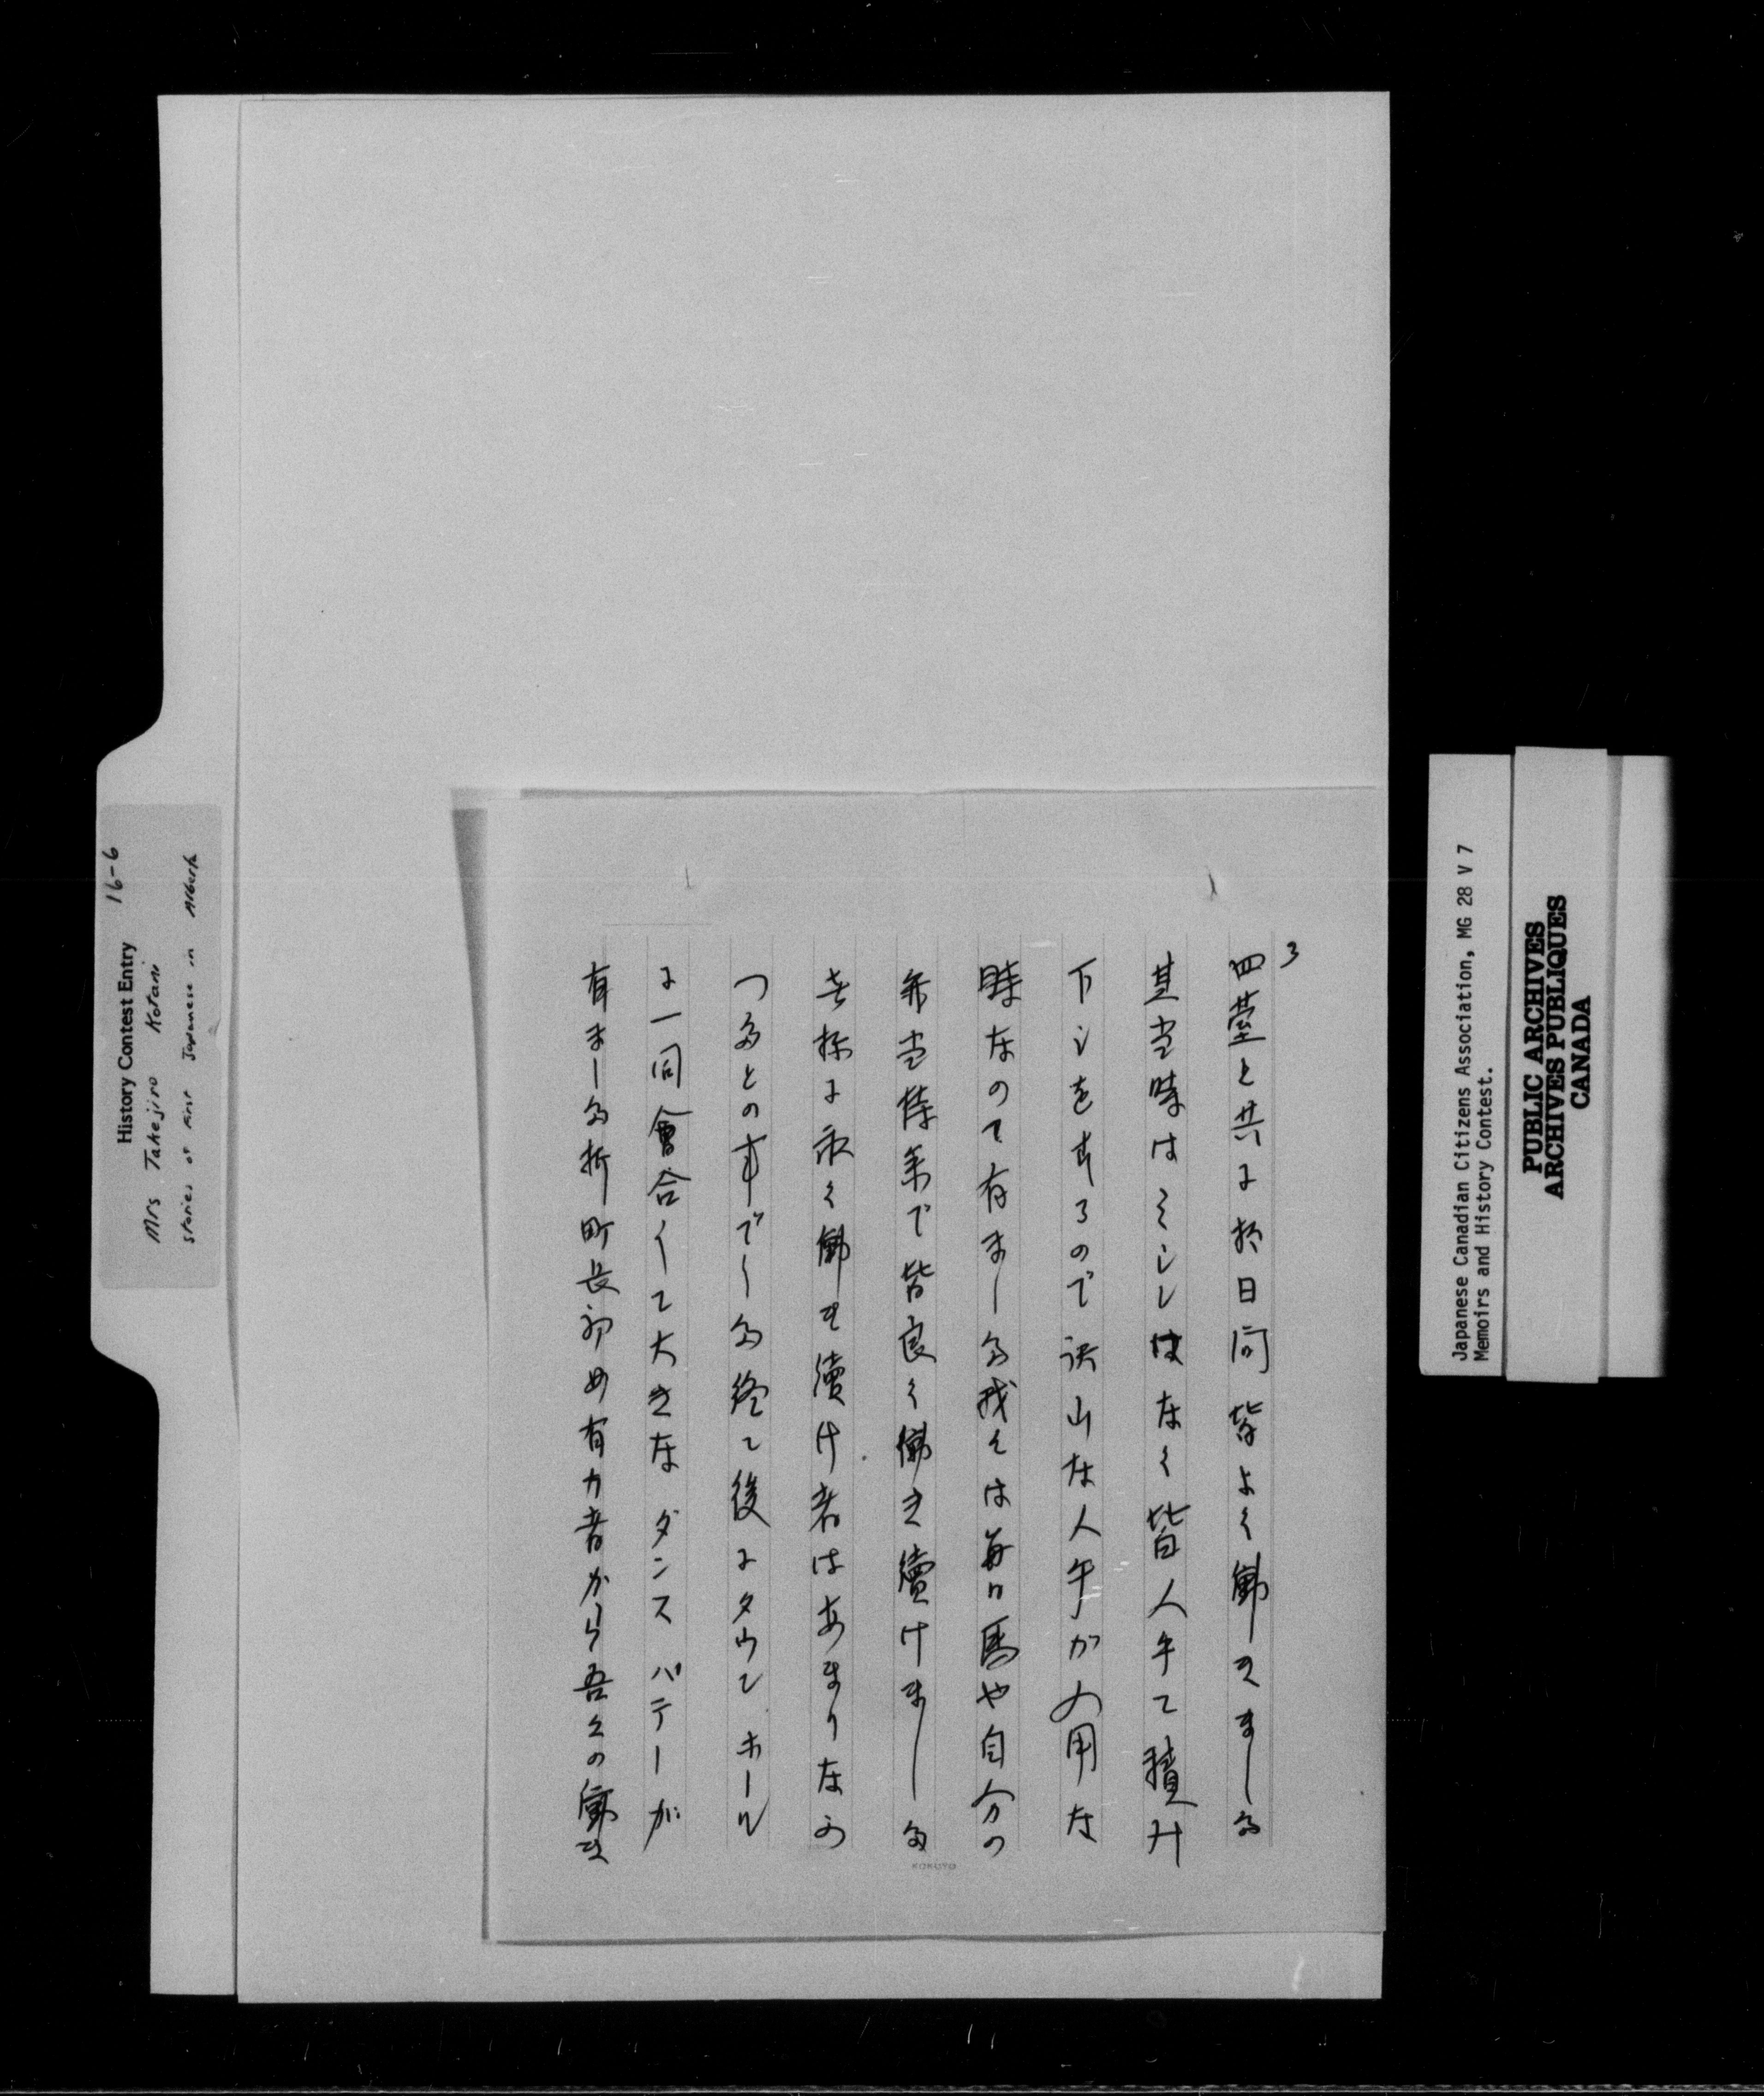 3
四臺と共に拾日間皆よく働きました
其当時はクレンは なく皆人手て積み
下しをするので沢山な人手が入用な
時なのて有ました我々は毎日馬や自分の
弁当持参で皆良く働き続けました
其様に永く働き續け者はあまりなか
つたとの事でした終て後にタウンホール
に一同會合して大きなダンスパテーが
有ました折町長初め有力者から吾々の働き
KOKUYO
History Contest Entry 16-6
Mrs Takejiro Kotani
Stories of First Japanese in Alberta
Japanese Canadian Citizens Association, MG 28 V 7
Memoirs and History Contest.
PUBLIC ARCHIVES
ARCHIVES PUBLIQUES
CANADA